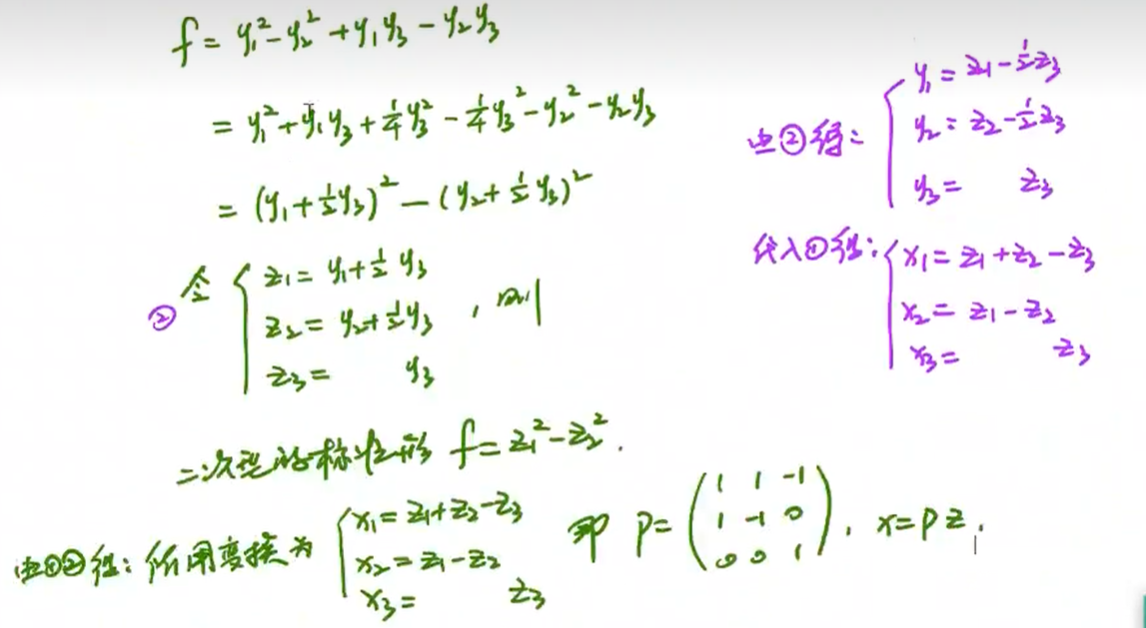 f = y₁² - y₂² + y₁y₃ - y₂y₃
= y₁² + y₁y₃ + ¼y₃² - ¼y₃² - y₂² - y₂y₃
= (y₁ + ½y₃)² - (y₂ + ½y₃)²
② 令 { z₁ = y₁ + ½y₃
z₂ = y₂ + ½y₃ , 则
z₃ = y₃
二次型的标准形 f = z₁² - z₂².
由①②得: 所用变换为 { x₁ = z₁ + z₂ - z₃
x₂ = z₁ - z₂
x₃ = z₃
即 P = ( 1 1 -1
1 -1 0
0 0 1 ), x = Pz.
由②得: { y₁ = z₁ - ½z₃
y₂ = z₂ - ½z₃
y₃ = z₃
代入①得: { x₁ = z₁ + z₂ - z₃
x₂ = z₁ - z₂
x₃ = z₃